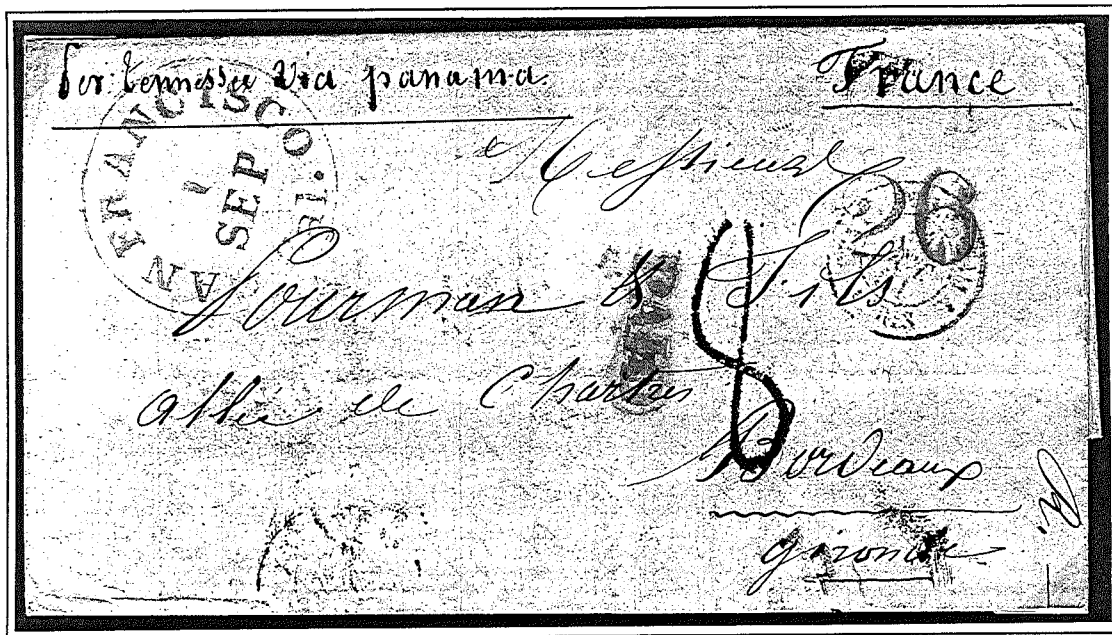 Per: tennessee Via panama.
France
SAN FRANCISCO Cal.
1
SEP
Messieurs
26
& Fils
PAID
8
allée de Chartres
Bordeaux
gironde